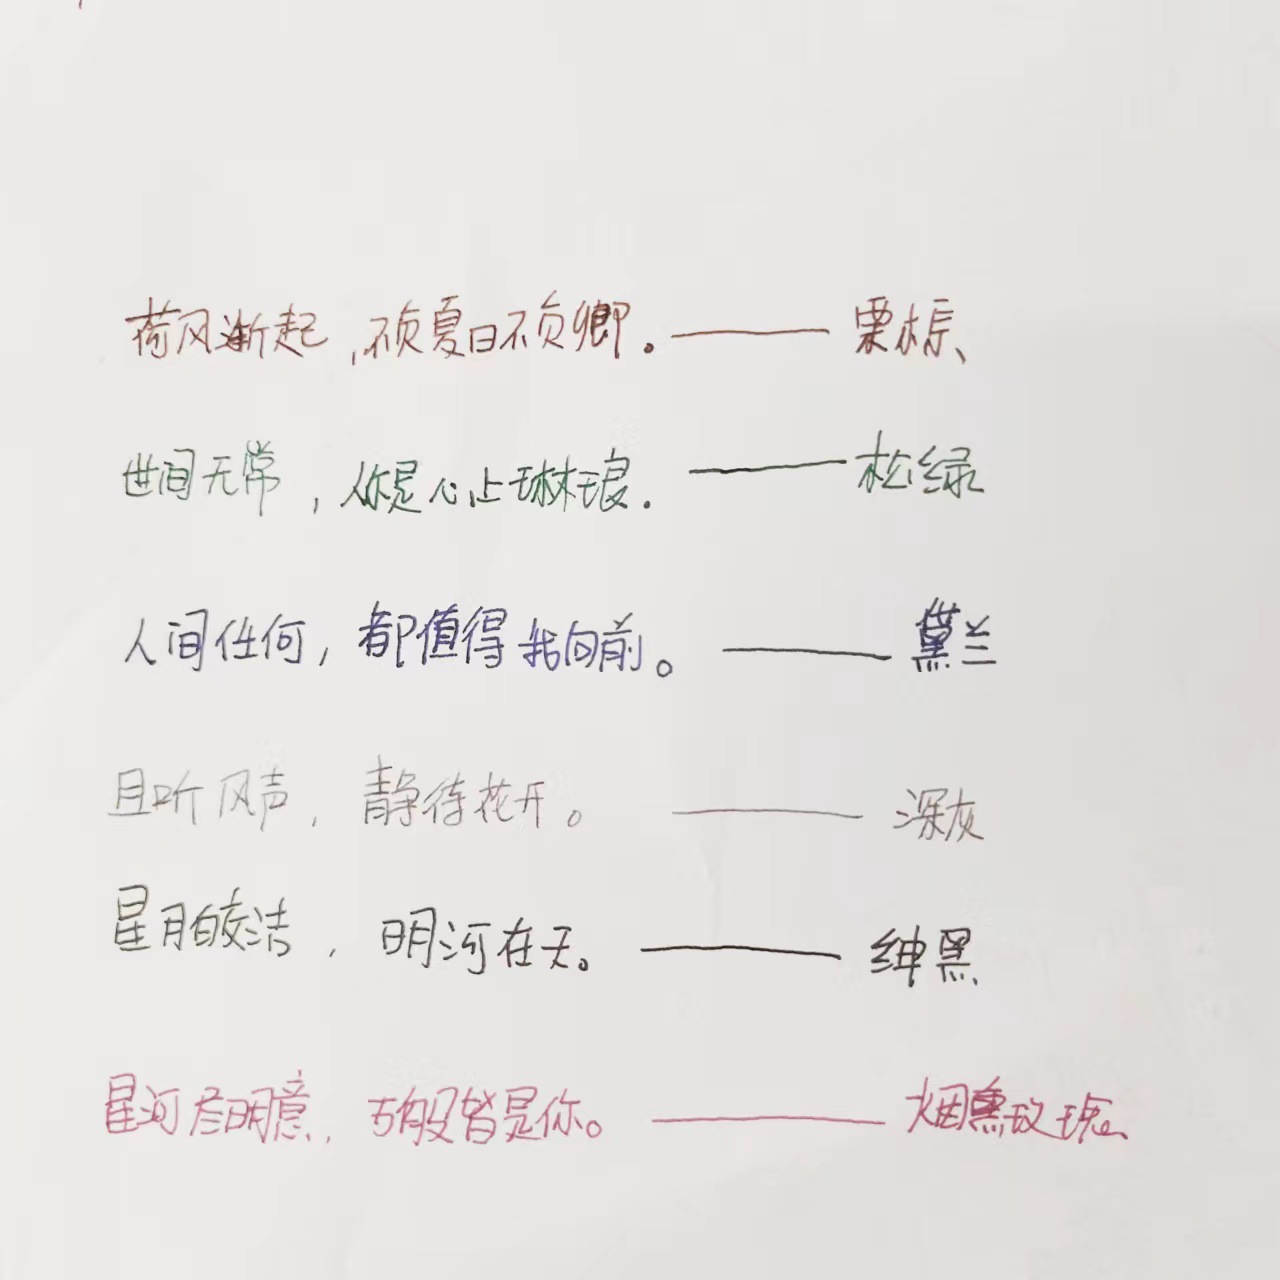 荷风渐起，不负夏日不负卿。——栗棕
世间无常，你是心上琳琅.——松绿
人间任何，都值得我向前。——黛兰
且听风声，静待花开。——深灰
星月皎洁，明河在天。——绅黑
星河彦明意，万般皆是你。——烟熏玫琬